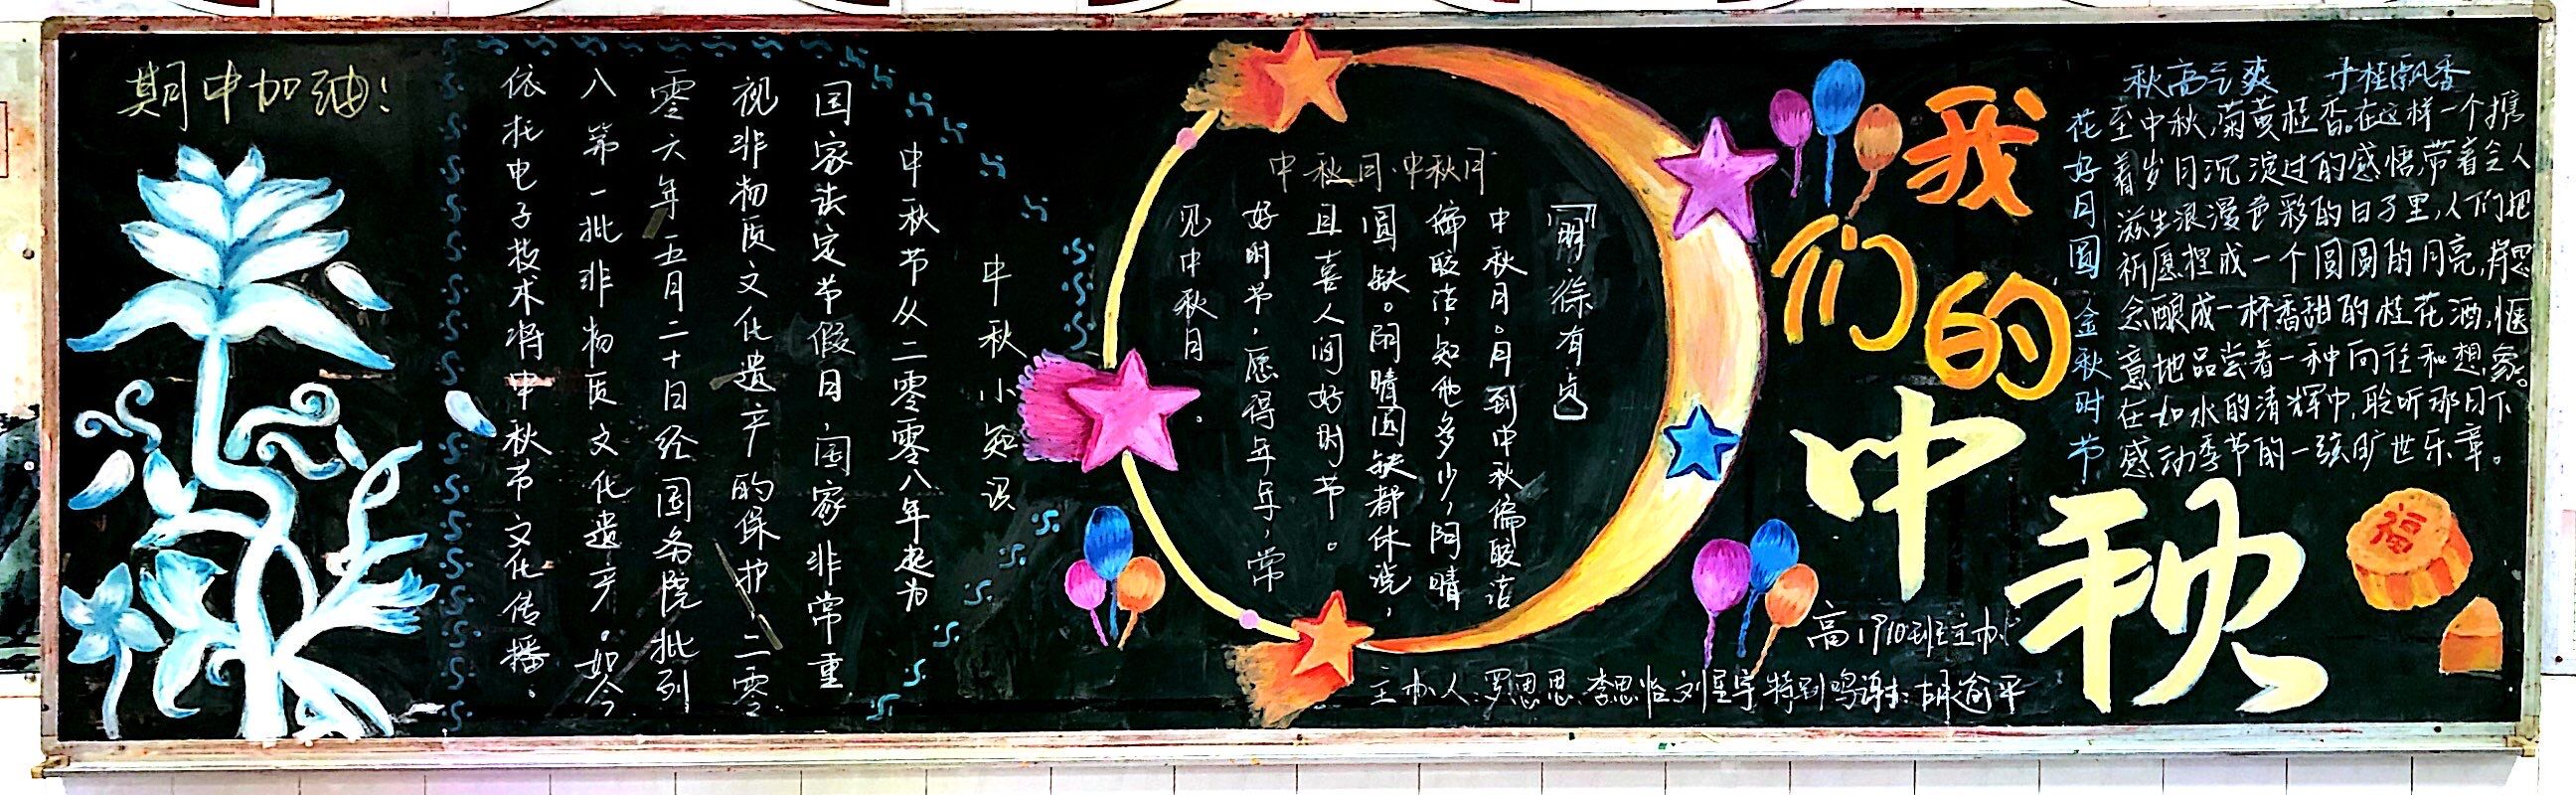 期中加油！
中秋小知识
中秋节从二零零八年起为
国家法定节假日，国家非常重
视非物质文化遗产的保护，二零
零六年五月二十日经国务院批列
八第一批非物质文化遗产。如今
依托电子技术将中秋节文化传播。
中秋月·中秋月
【明】徐有贞
中秋月。月到中秋偏皎洁
偏皎洁，知他多少，阴晴
圆缺。阴晴圆缺都休说，
且喜人间好时节。
好时节，愿得年年，常
见中秋月。
我们的中秋
秋高气爽 十桂飘香
花好月圆 金秋时节
至中秋，菊黄桂香。在这样一个携
着岁月沉淀过的感悟，带着令人
滋生浪漫色彩的日子里，人们把
祈愿捏成一个圆圆的月亮，将思
念酿成一杯香甜的桂花酒，惬
意地品尝着一种向往和想象。
在如水的清辉中，聆听那月下
感动季节的一弦旷世乐章。
福
高1910班主办
主办人：罗思思、李思怡 刘星宇 特别鸣谢：胡渝平